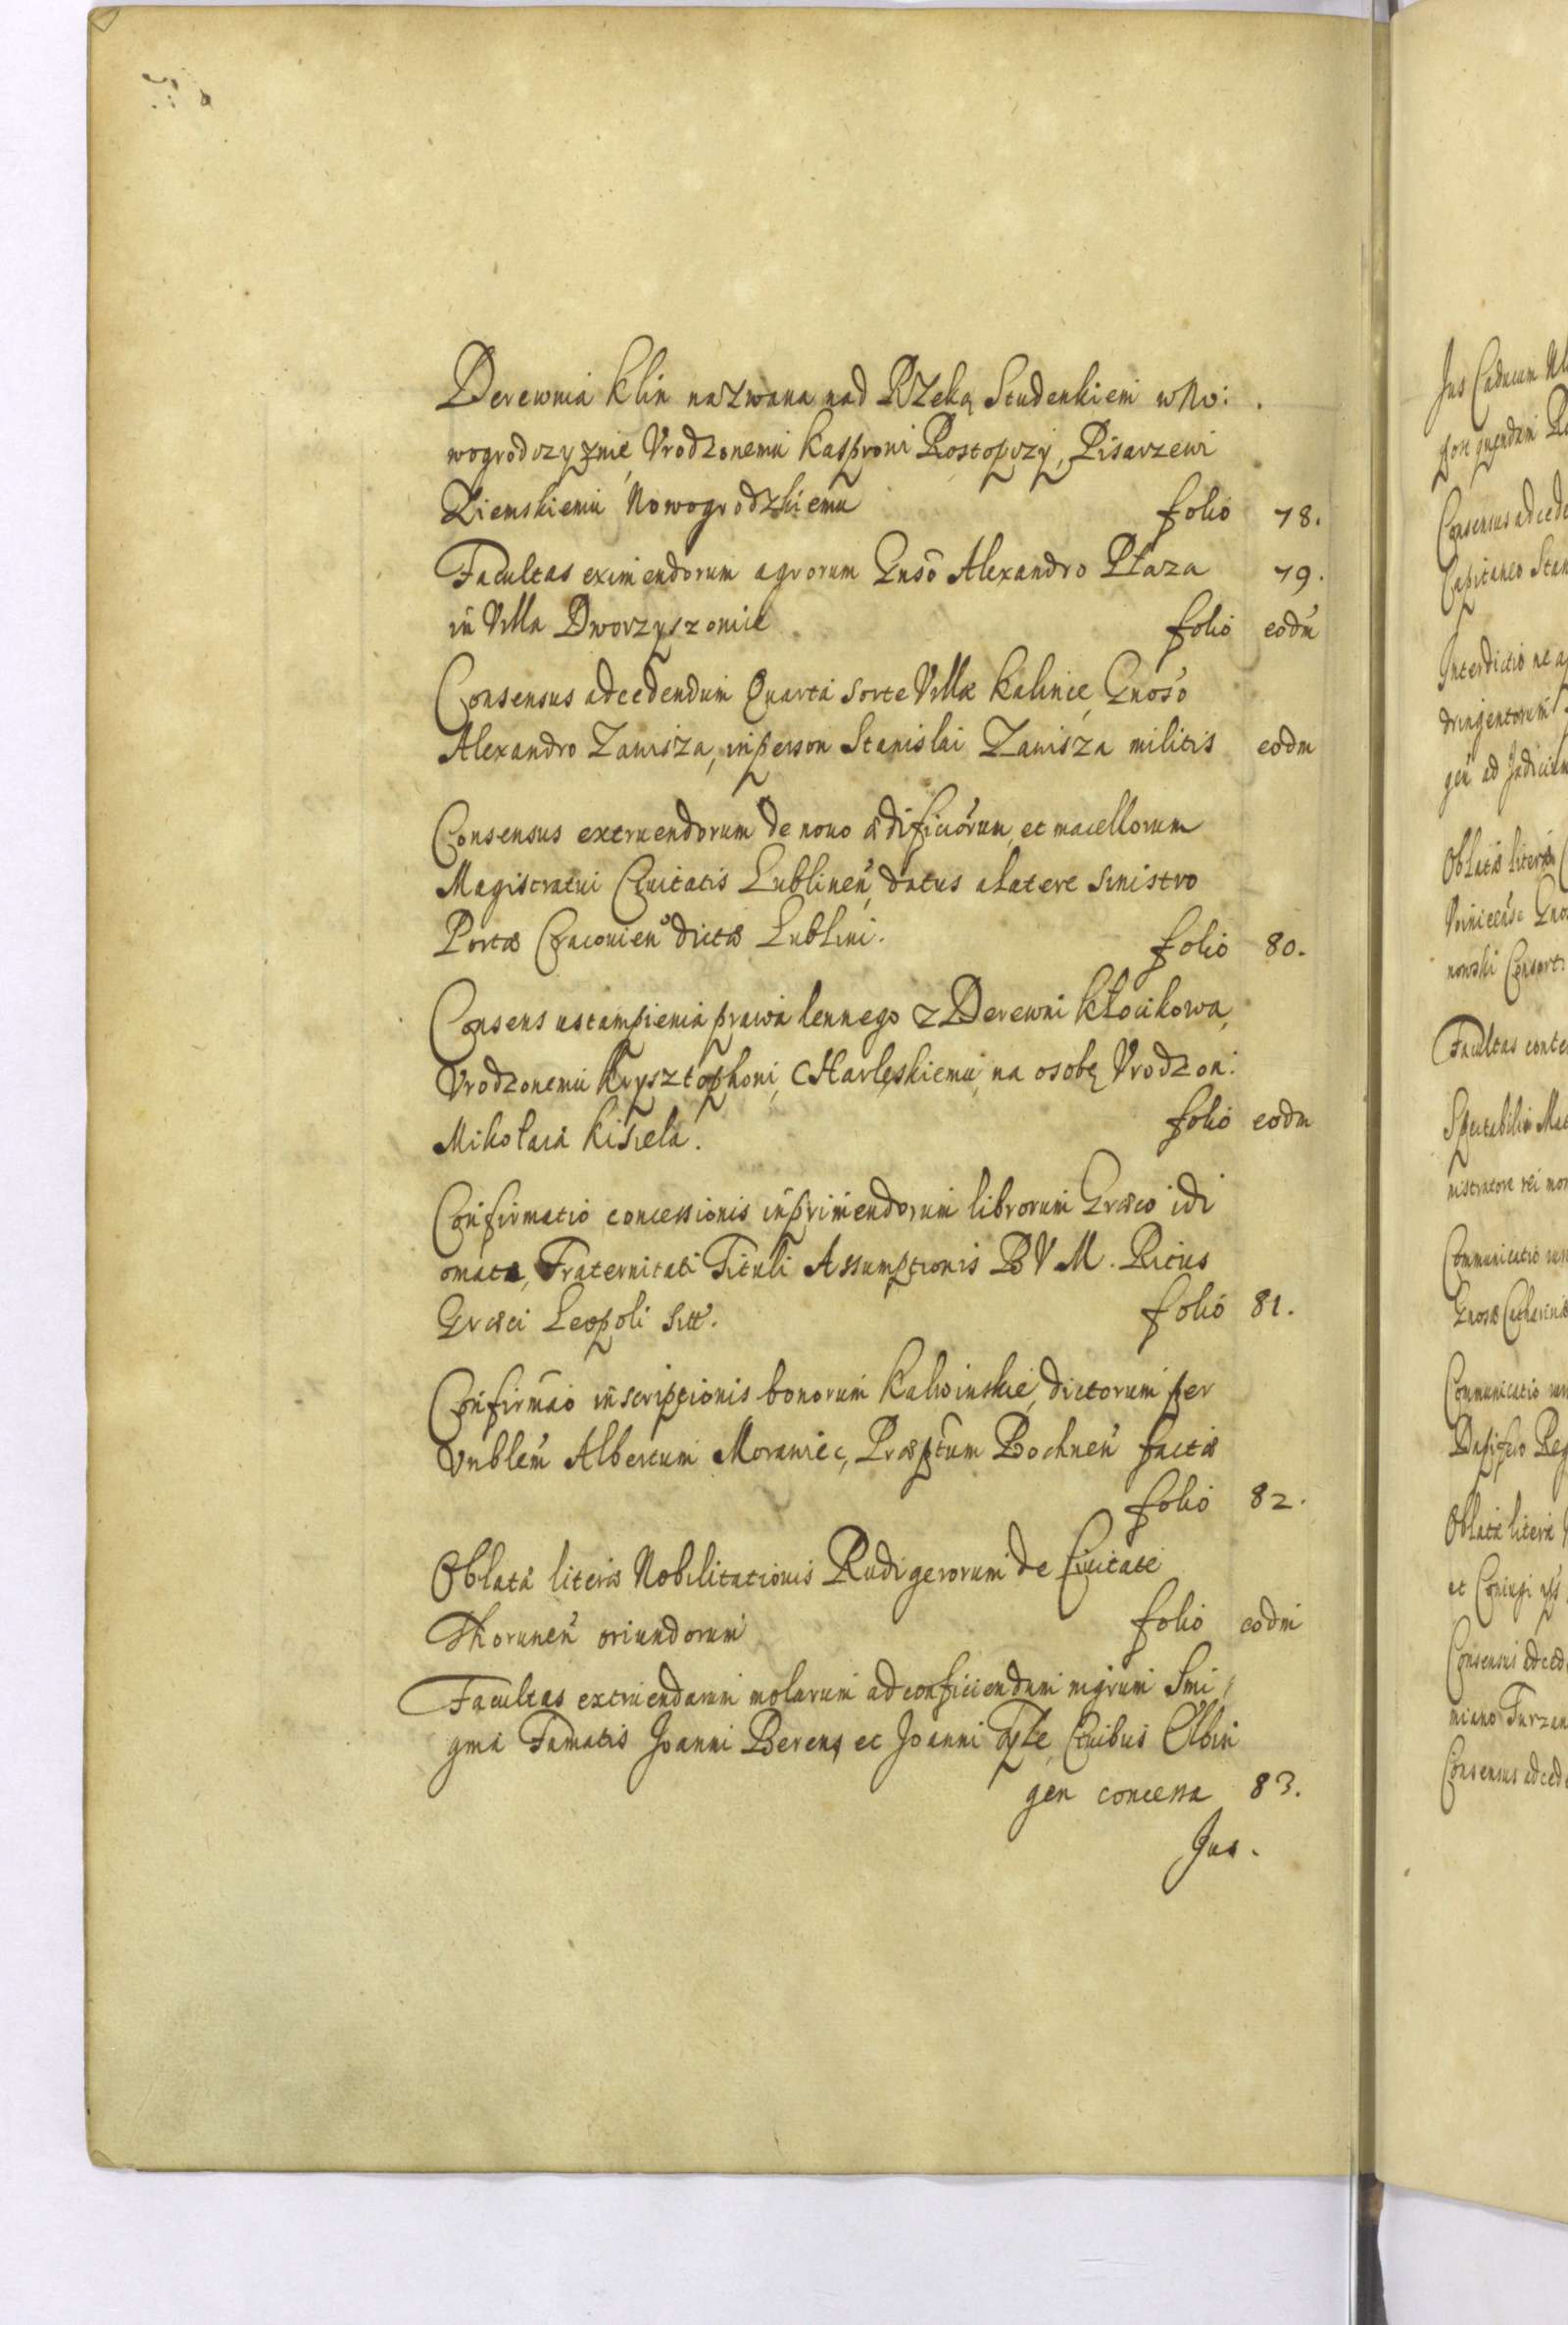 Derewnia Klin nazwana nad Rzeką Studenkiem w No:
wogrodczyznie, Vrodzonemu Kasprowi Rostopczy, Pisarzewi
Ziemskiemu Nowogrodzkiemu folio 78.
Facultas eximendorum agrorum Gnso Alexandro Płaza 79.
in Villa Dworzyszowice folio eodm
Consensus ad cedendum Quarta sorte Villæ Kalinie, Gnoso
Alexandro Zawisza, in person Stanislai Zawisza militis eodm
Consensus extruendorum de nouo ædificiorum, et macellorum
Magistratui Ciuitatis Lublinen, datus a latere sinistro
Portæ Cracouien dictæ Lublini. folio 80.
Consens ustampienia prawa lennego z Derewni Kłocikowa,
Vrodzonemu Krysztophowi, Charlęskiemu, na osobę Vrodzon:
Mikołaia Kisiela. folio eodm
Confirmatio concessionis inprimendorum librorum Græco idi
omate, Fraternitati Tituli Assumptionis B V M. Ritus
Græci Leopoli sitt. folio 81.
Confirmao inscriptionis bonorum Kalwinskie, dictorum per
Vnblem Albertum Morawiec, Præptum Bochnen factæ
folio 82.
Oblata literæ Nobilitationis Rudigerorum de Ciuitate
Thorunen oriundorum folio eodm
Facultas extruendarum molarum ad conficiendum nigrum Smi
gma Famatis Joanni Berens et Joanni Tyle, Ciuibus Elbin
gen concessa 83.
Jus.
Jus Caducum
Consensus ad cede
Capitaneo Stan
Interdictio ne
dringentorum
gen ad Judicium
Oblata litera
nowski Consort
Facultas conte
Spectabilis
nistratore rei mon
Communicatio
Gnosæ Catharinæ
Communicatio
Dapifero Reg
Oblata litera
et Coniugi
Consensus ad ced
miano Turzan
Consensus ad cede